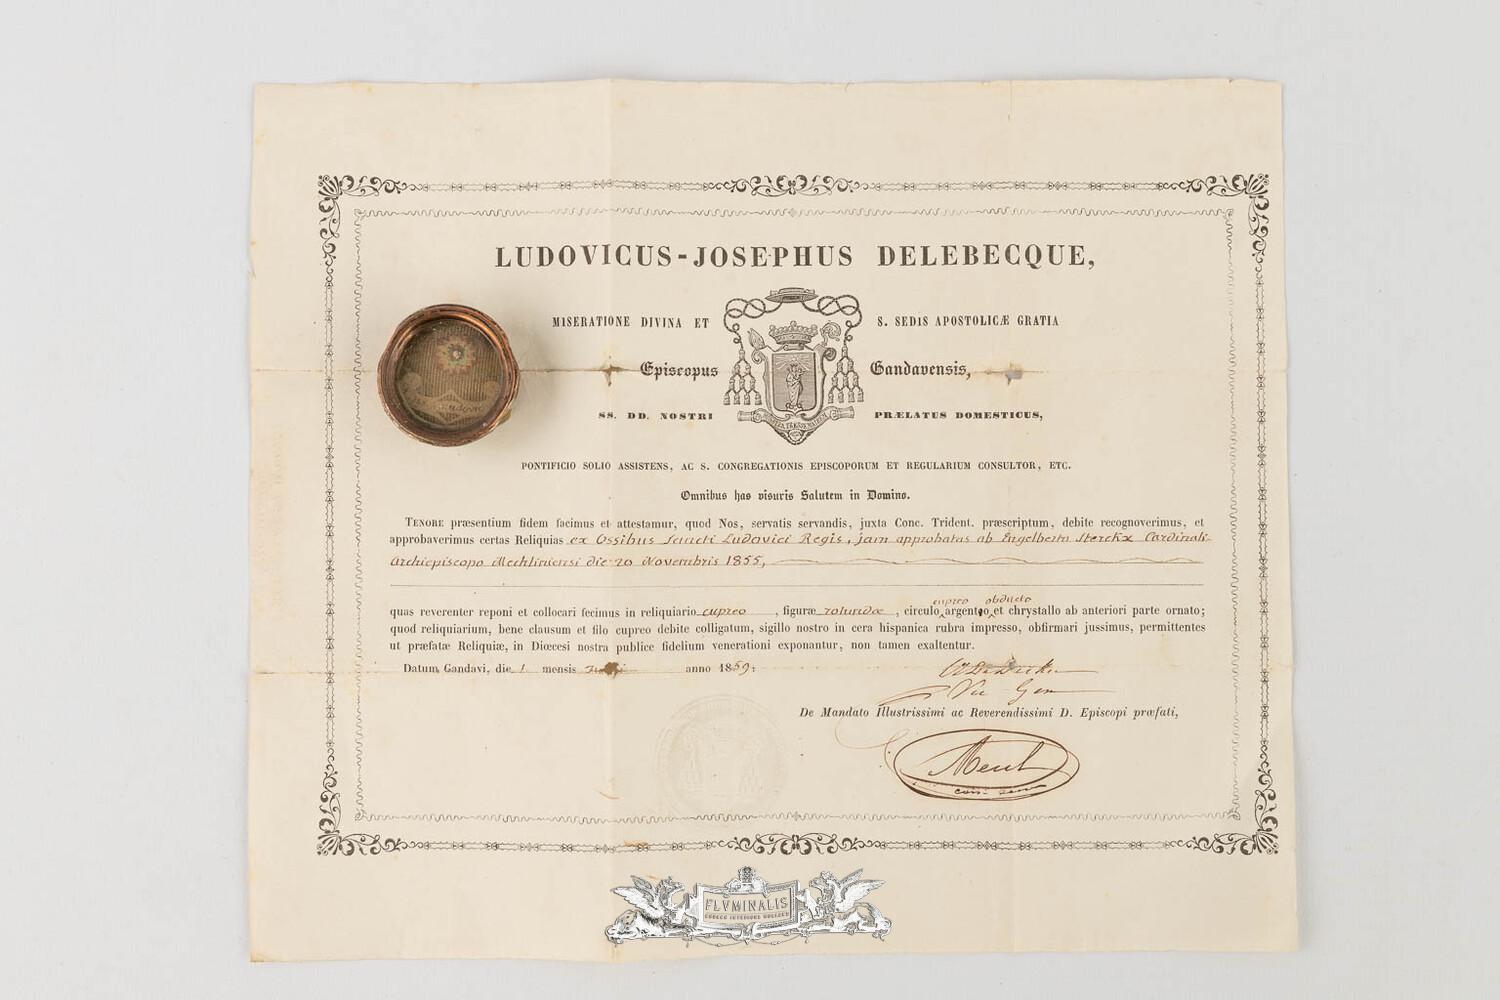 LUDOVICUS-JOSEPHUS DELEBECQUE,
MISERATIONE DIVINA ET S. SEDIS APOSTOLICÆ GRATIA
Episcopus Gandavensis,
SS. DD. NOSTRI PRÆLATUS DOMESTICUS,
PONTIFICIO SOLIO ASSISTENS, AC S. CONGREGATIONIS EPISCOPORUM ET REGULARIUM CONSULTOR, ETC.
Omnibus has visuris Salutem in Domino.
TENORE præsentium fidem facimus et attestamur, quod Nos, servatis servandis, juxta Conc. Trident. præscriptum, debite recognoverimus, et
approbaverimus certas Reliquias ex Ossibus Sancti Ludovici Regis, jam approbatas ab Engelberto Sterckx Cardinali-
Archiepiscopo Mechliniensi die 20 Novembris 1855,
cupreo obducto
quas reverenter reponi et collocari fecimus in reliquiario cupreo, figuræ rotundæ, circulo argenteo et chrystallo ab anteriori parte ornato;
quod reliquiarium, bene clausum et filo cupreo debite colligatum, sigillo nostro in cera hispanica rubra impresso, obfirmari jussimus, permittentes
ut præfatæ Reliquiæ, in Diœcesi nostra publice fidelium venerationi exponantur, non tamen exaltentur.
Datum Gandavi, die 1 mensis anno 1859.
Vic Gen
De Mandato Illustrissimi ac Reverendissimi D. Episcopi præfati,
FLVMINALIS